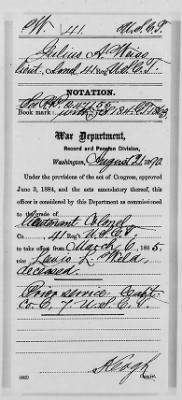 W. 41. U.S.C.T.
Julius A. Weiss
Lieut. Col. 41 Reg. U.S.C.T.
NOTATION.
Book mark:
War Department,
Record and Pension Division,
Washington, August 21, 1890.
Under the provisions of the act of Congress, approved
June 3, 1884, and the acts amendatory thereof, this
officer is considered by this Department as commissioned
to the grade of
Lieutenant Colonel
Co. , 41 Reg't U.S.C.T.
to take effect from March 6, 1865,
vice Lewis L. Weld,
deceased.
Prior service: Capt.
Co. E, 7 U.S.C.T.